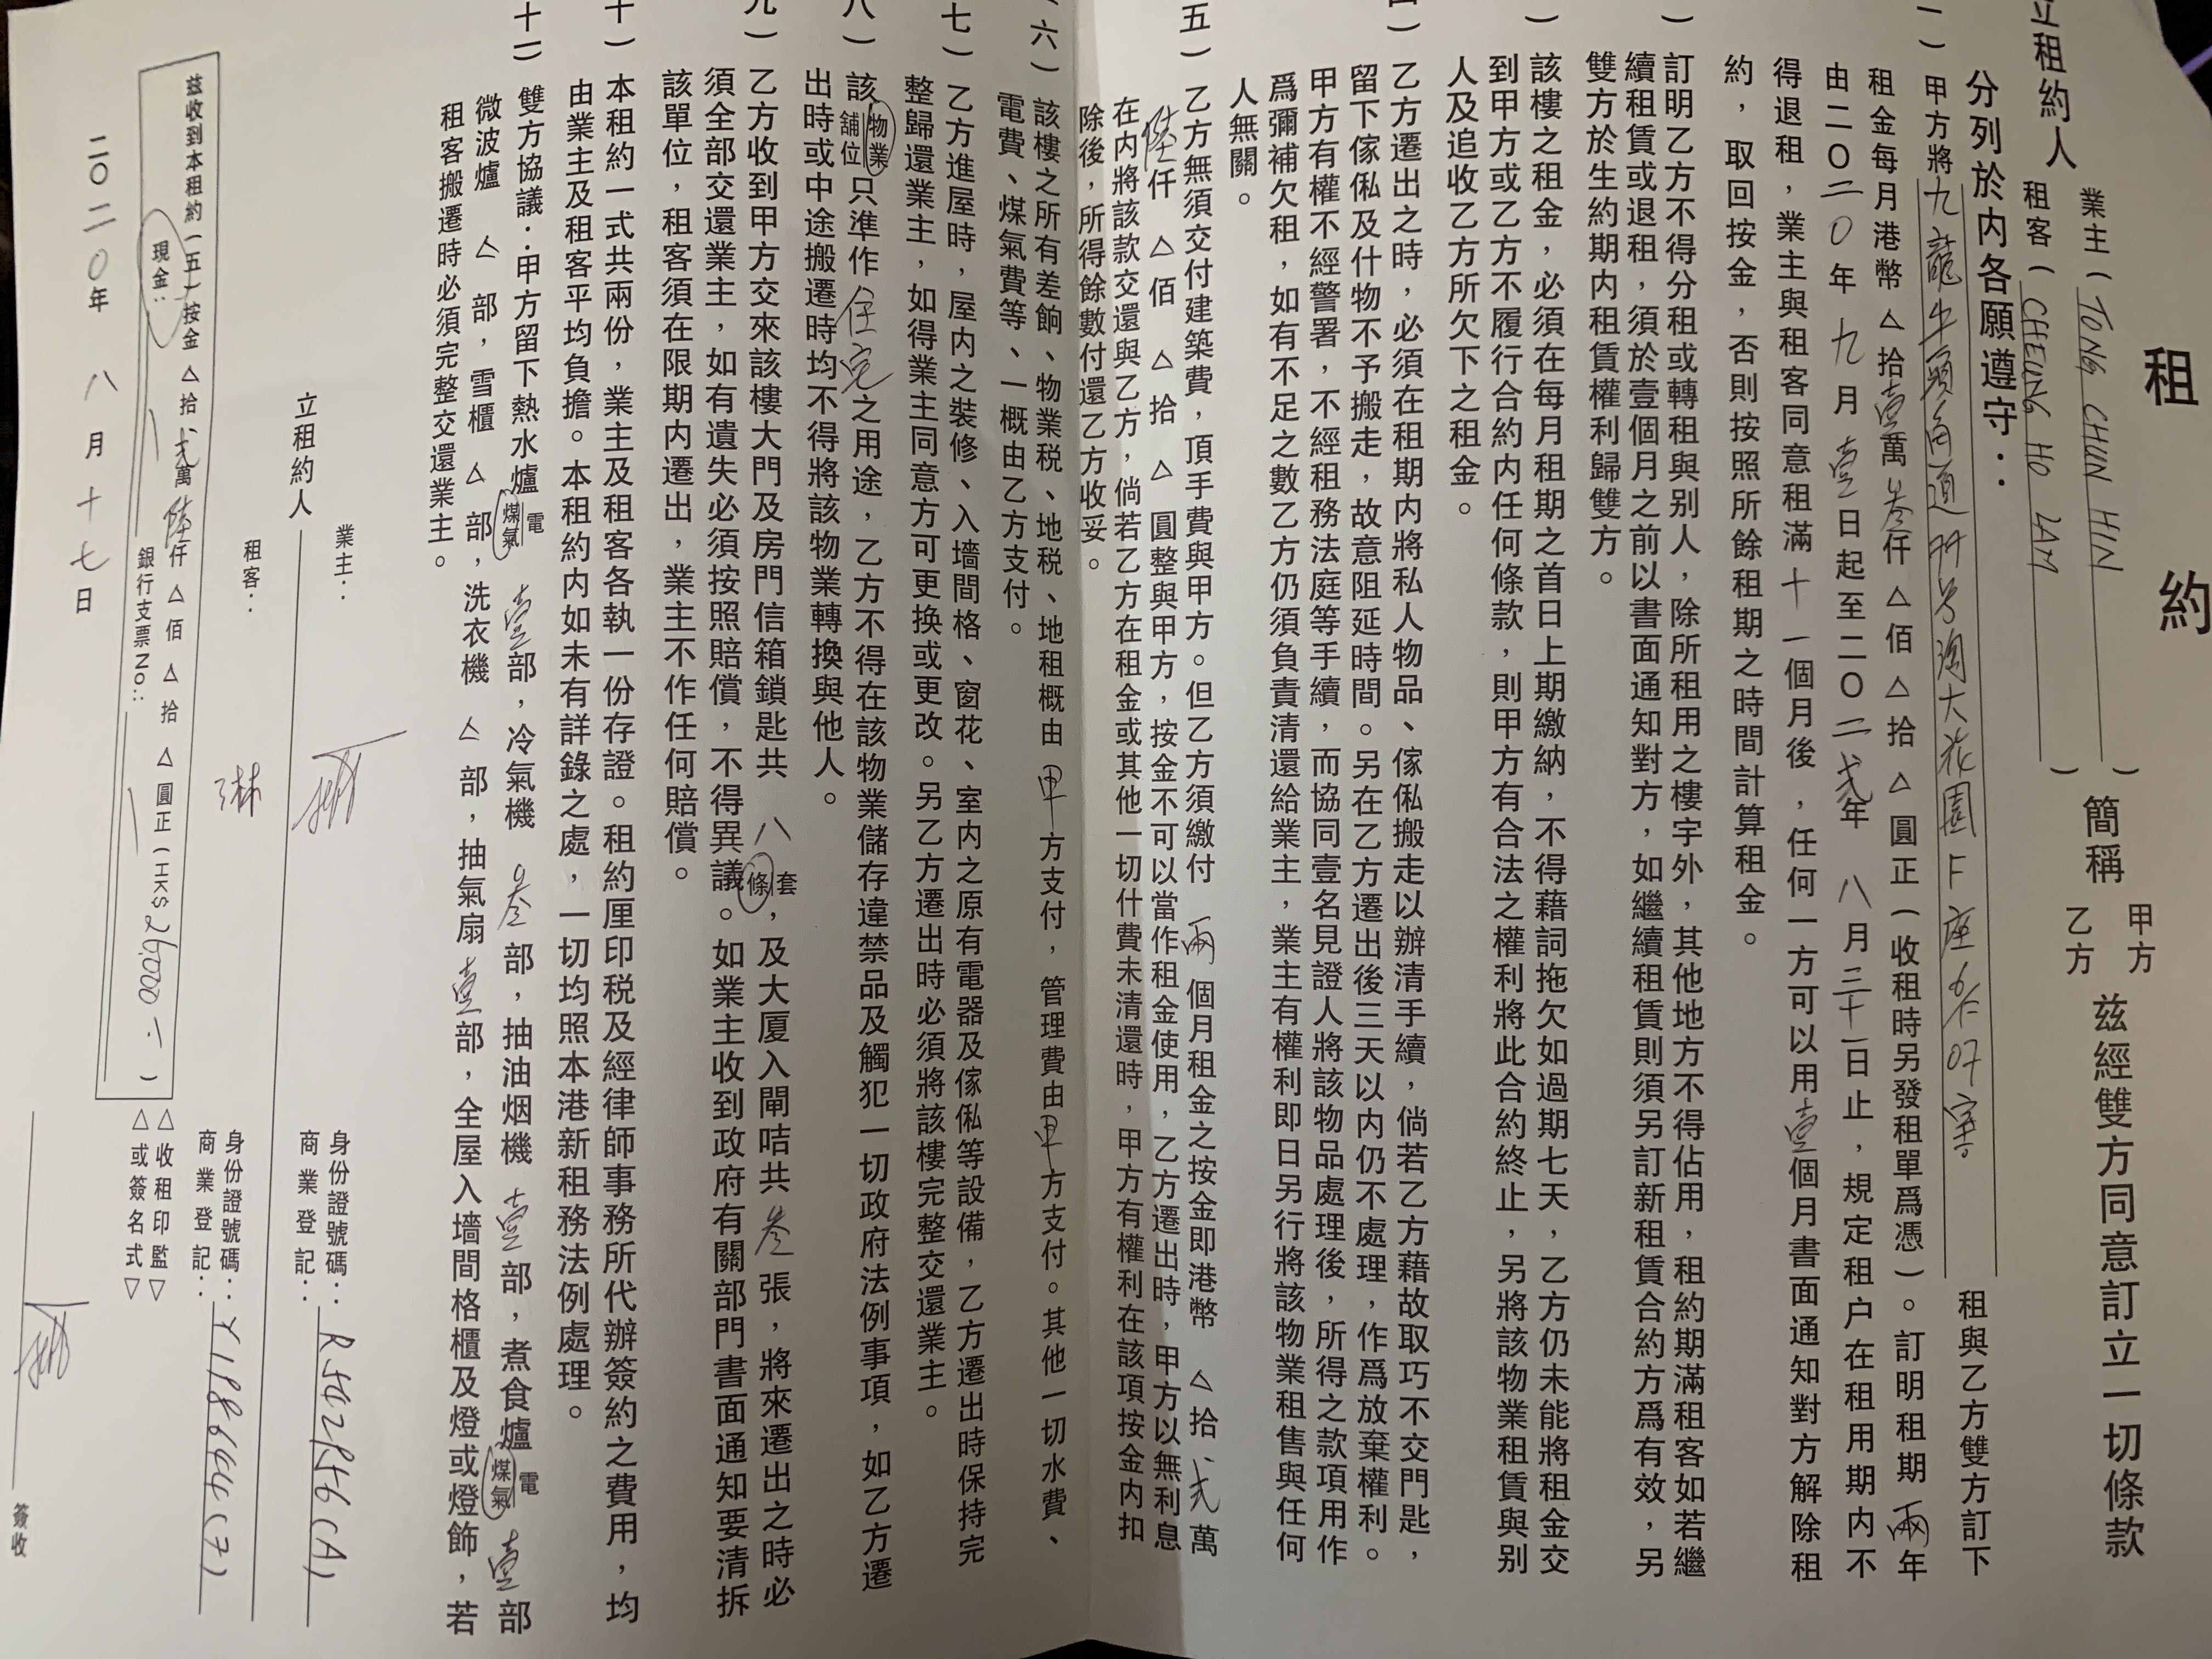 租約
立租約人
業主（TONG CHUN HIN）
租客（CHEUNG HO LAM）
簡稱
甲方
乙方
兹經雙方同意訂立一切條款
分列於内各願遵守：
一）甲方將九龍牛頭角道77号淘大花園F座 07室。租與乙方雙方訂下
租金每月港幣△拾壹萬叁仟△佰△拾△圓正（收租時另發租單爲憑）。訂明租期兩年
由二〇二〇年九月壹日起至二〇二弍年八月三十一日止，規定租户在租用期内不
得退租，業主與租客同意租滿十一個月後，任何一方可以用壹個月書面通知對方解除租
約，取回按金，否則按照所餘租期之時間計算租金。
）訂明乙方不得分租或轉租與别人，除所租用之樓宇外，其他地方不得佔用，租約期滿租客如若繼
續租賃或退租，須於壹個月之前以書面通知對方，如繼續租賃則須另訂新租賃合約方爲有效，另
雙方於生約期内租賃權利歸雙方。
）該樓之租金，必須在每月租期之首日上期繳納，不得藉詞拖欠如過期七天，乙方仍未能將租金交
到甲方或乙方不履行合約内任何條款，則甲方有合法之權利將此合約終止，另將該物業租賃與别
人及追收乙方所欠下之租金。
四）乙方遷出之時，必須在租期内將私人物品、傢俬搬走以辦清手續，倘若乙方藉故取巧不交門匙，
留下傢俬及什物不予搬走，故意阻延時間。另在乙方遷出後三天以内仍不處理，作爲放棄權利。
甲方有權不經警署，不經租務法庭等手續，而協同壹名見證人將該物品處理後，所得之款項用作
爲彌補欠租，如有不足之數乙方仍須負責清還給業主，業主有權利即日另行將該物業租售與任何
人無關。
五）乙方無須交付建築費，頂手費與甲方。但乙方須繳付兩個月租金之按金即港幣△拾弍萬
陸仟△佰△拾△圓整與甲方，按金不可以當作租金使用，乙方遷出時，甲方以無利息
在内將該款交還與乙方，倘若乙方在租金或其他一切什費未清還時，甲方有權利在該項按金内扣
除後，所得餘數付還乙方收妥。
（六）該樓之所有差餉、物業税、地税、地租概由甲方支付，管理費由甲方支付。其他一切水費、
電費、煤氣費等、一概由乙方支付。
七）乙方進屋時，屋内之裝修、入墻間格、窗花、室内之原有電器及傢俬等設備，乙方遷出時保持完
整歸還業主，如得業主同意方可更換或更改。另乙方遷出時必須將該樓完整交還業主。
八）該物業舖位只準作住宅之用途，乙方不得在該物業儲存違禁品及觸犯一切政府法例事項，如乙方遷
出時或中途搬遷時均不得將該物業轉換與他人。
九）乙方收到甲方交來該樓大門及房門信箱鎖匙共八套條，及大厦入閘咭共叁張，將來遷出之時必
須全部交還業主，如有遺失必須按照賠償，不得異議。如業主收到政府有關部門書面通知要清拆
該單位，租客須在限期内遷出，業主不作任何賠償。
十）本租約一式共兩份，業主及租客各執一份存證。租約厘印税及經律師事務所代辦簽約之費用，均
由業主及租客平均負擔。本租約内如未有詳錄之處，一切均照本港新租務法例處理。
十一）雙方協議：甲方留下熱水爐電煤氣壹部，冷氣機叁部，抽油烟機壹部，煮食爐電煤氣壹部
微波爐△部，雪櫃△部，洗衣機△部，抽氣扇壹部，全屋入墻間格櫃及燈或燈飾，若
租客搬遷時必須完整交還業主。
立租約人
業主：
身份證號碼：
商業登記：
R582856(A)
租客：
身份證號碼：
商業登記：
Y198644(7)
兹收到本租約（五）按金△拾弍萬陸仟△佰△拾△圓正（HK$26,000.-）
現金：
銀行支票No.：
△收租印監▽
△或簽名式▽
二〇二〇年八月十七日
簽收